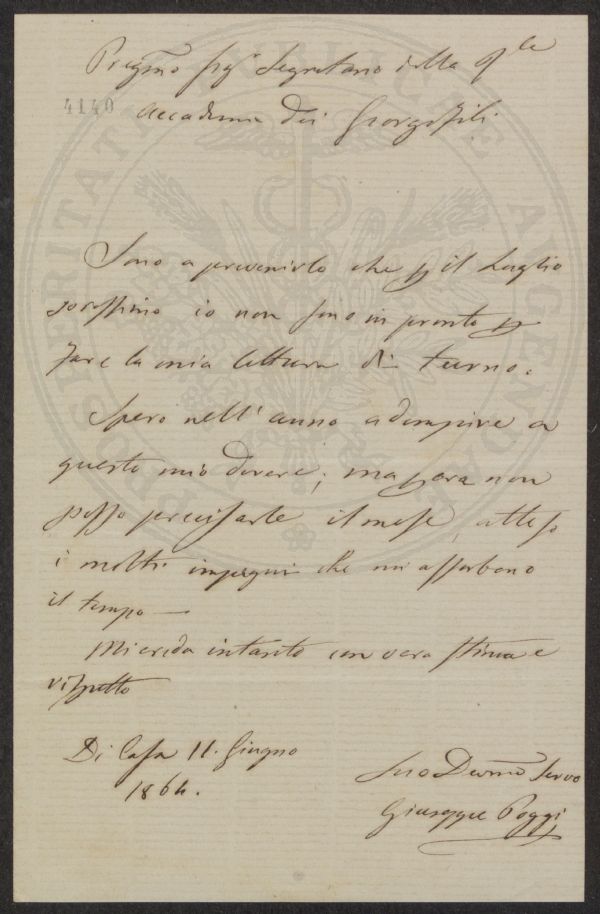 Pregmo Sigr Segretario della Rle
4140
Accademia dei Georgofili
Sono a prevenirlo che p il Luglio
prossimo io non sono in pronto p
fare la mia lettura di turno.
Spero nell'anno adempire a
questo mio dovere; ma p ora non
posso precisarle il mese, atteso
i molti impegni che mi assorbono
il tempo —
Mi creda intanto con vera stima e
rispetto
Di Casa 11. Giugno
1864.
Suo Devmo Servo
Giuseppe Poggi